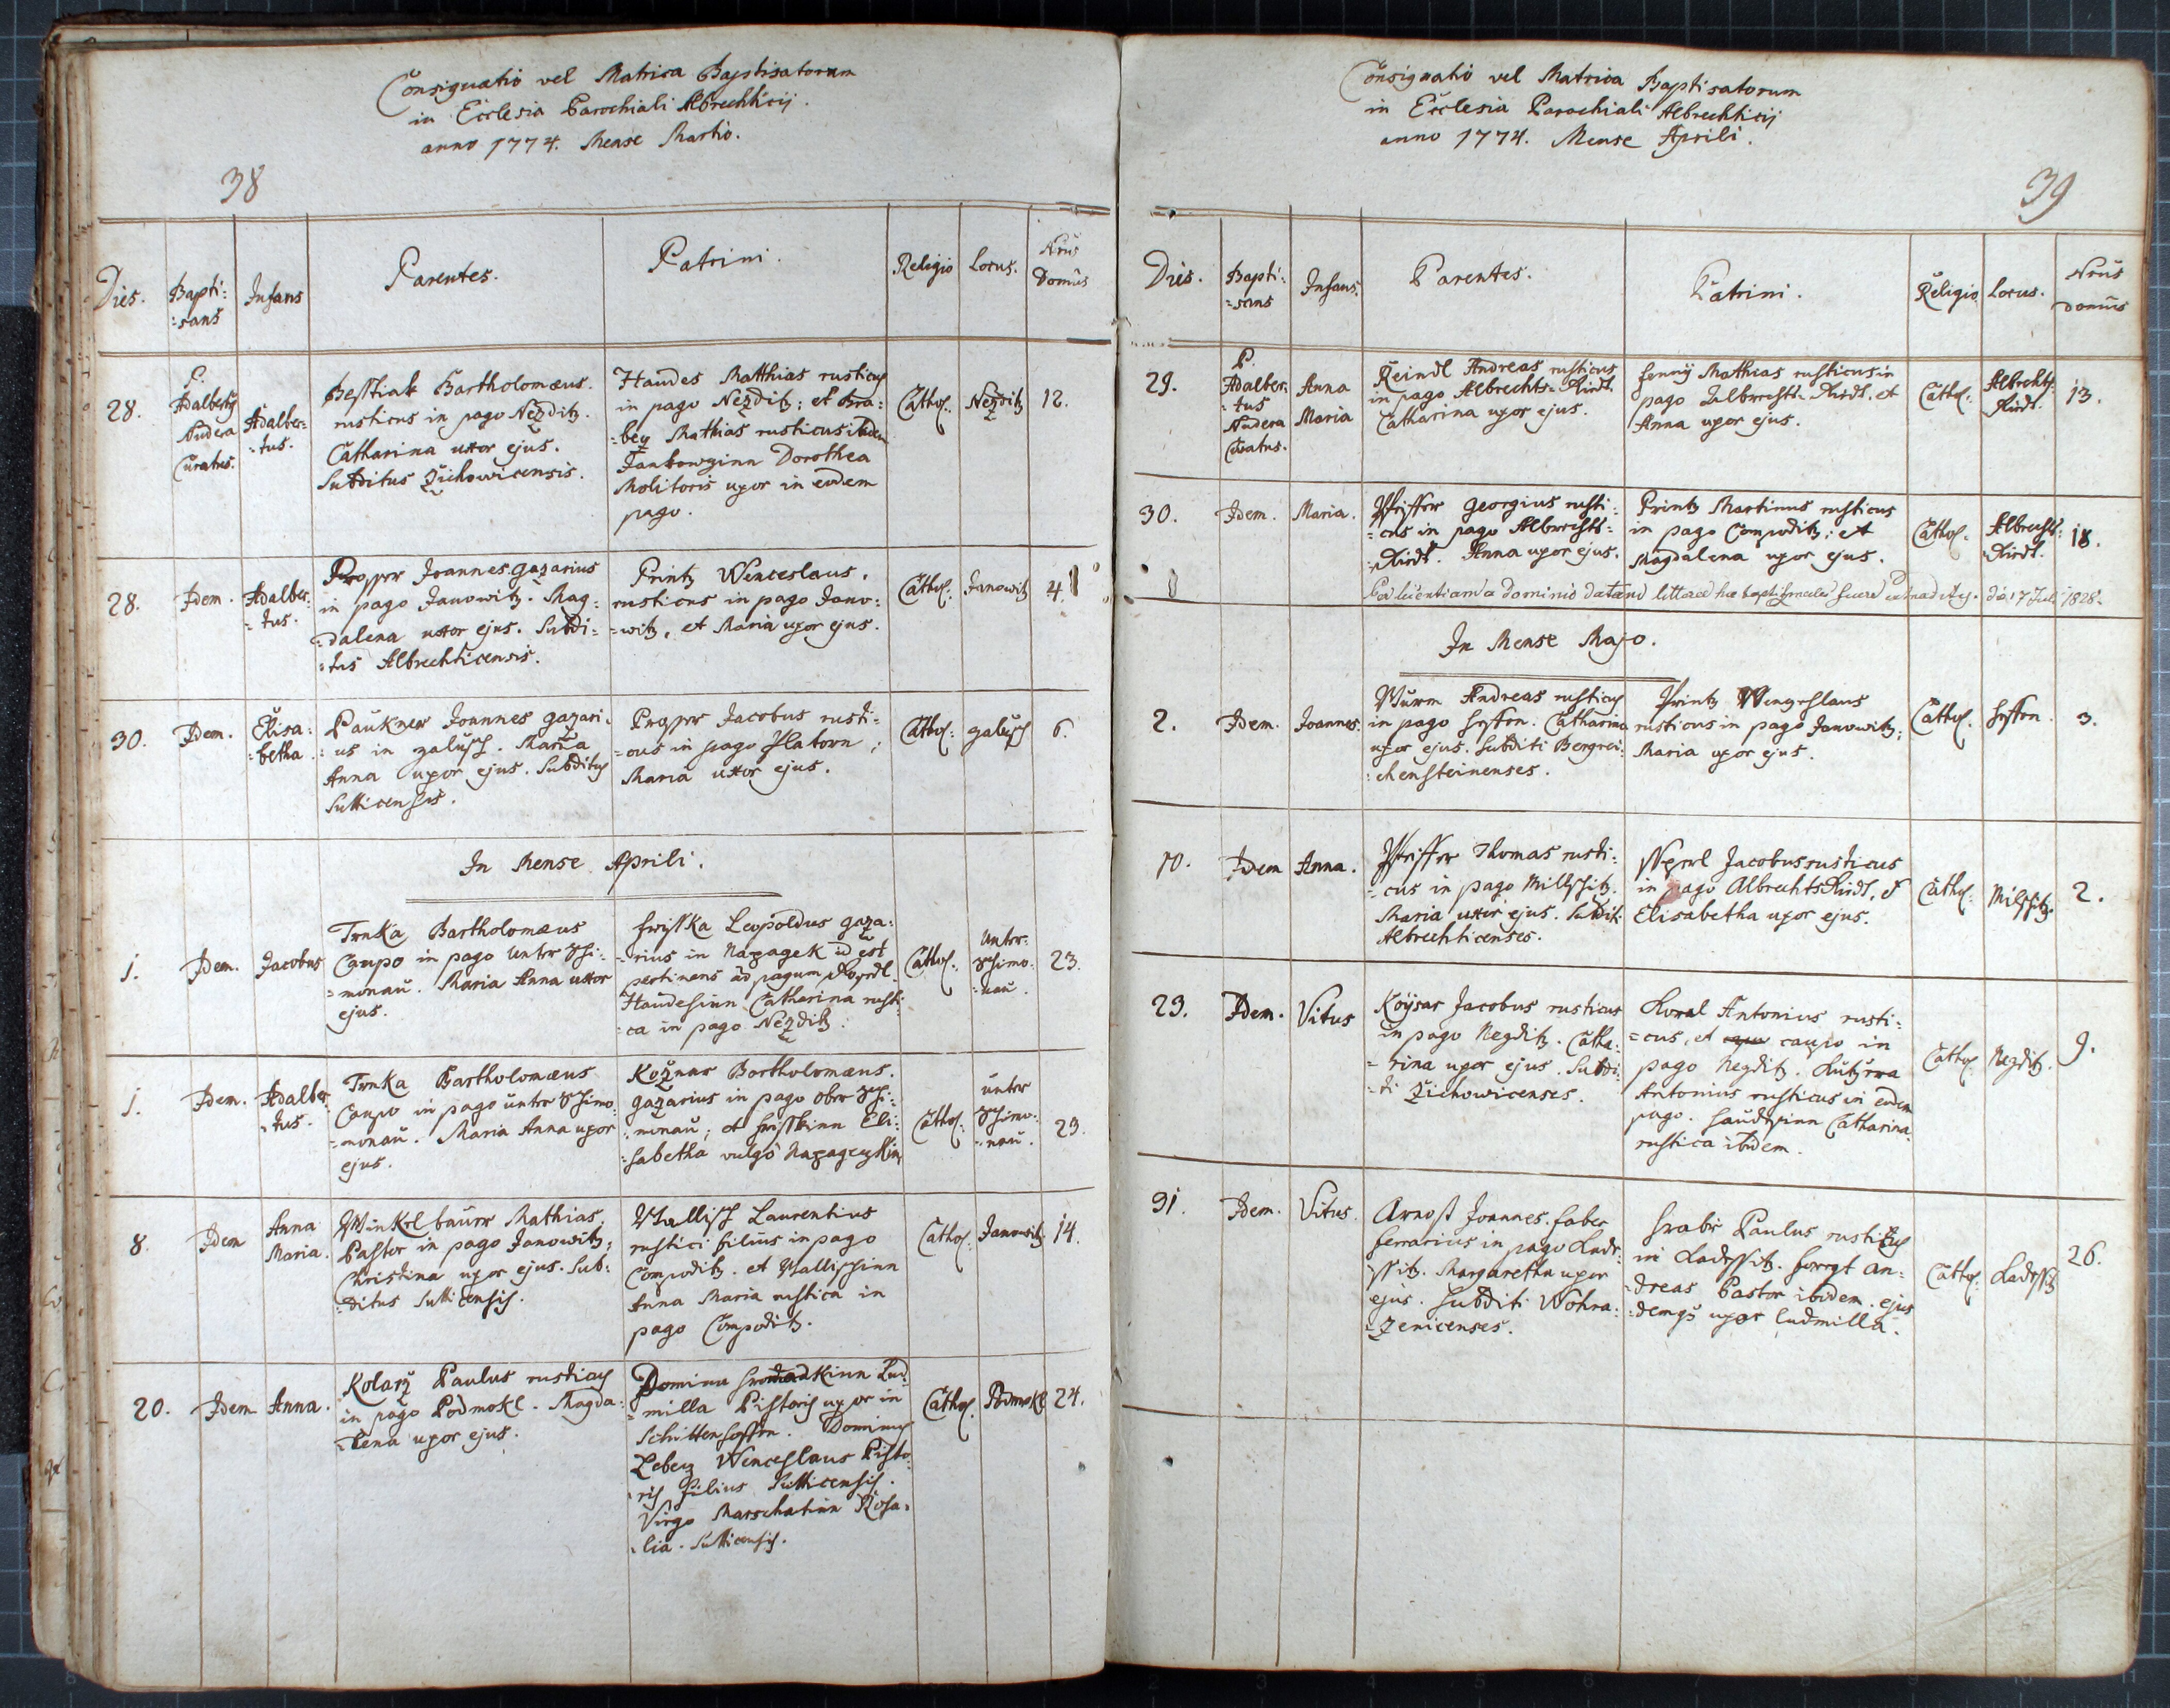 Consignatio vel Matrica Baptisatorum
in Ecclesia Parochiali Albrechticij.
anno 1774. Mense Martio.
38
Dies. Bapti:sans Infans Parentes. Patrini. Religio Locus. Nrus Domus
28.
P. Adalberty Nudera Curatus.
Adalber:
:tus.
Bestiak Bartholomæus.
rusticus in pago Nezditz.
Catharina uxor ejus.
Subditus Zichowicensis.
Haudes Matthias rusticus
in pago Nezditz; et Bra:
=bey Mathias rusticus ibidem
Jankowzinn Dorothea
Molitoris uxor in eodem
pago.
Cathol: Nezditz 12.
28. Idem. Adalber:
:tus.
Joannes gazarius
in pago Janowitz. Mag:
=dalena uxor ejus. Subdi:
=tus Albrechticensis.
Printz Wenceslaus,
rusticus in pago Jano:
=witz, et Maria uxor ejus.
Cathol: Janowitz 41
30. Idem. Elisa:
:betha.
Paukner Joannes gazari:
:us in zalusch. Maria
Anna uxor ejus. Subditus
Sutticensis.
Jacobus rusti:
=cus in pago Platorn;
Maria uxor ejus.
Cathol: zalusch 6.
In Mense Aprili.
1. Idem. Jacobus
Trnka Bartholomæus
Caupo in pago Unter Tsi:
=monau. Maria Anna uxor
ejus.
Leopoldus gaza:
=rius in Napagek id est
pertinens ad pagum
Haudesinn Catharina rusti:
:ca in pago Nezditz.
Cathol: Unter
Tsimo:
:nau.
23.
1. Idem. Adalber
:tus.
Trnka Bartholomæus
Caupo in pago unter Tsimo:
=monau. Maria Anna uxor
ejus.
Koznar Bartholomæus.
gazarius in pago ober Tsi:
:monau; et Eli:
:sabetha vulgo
Cathol: unter
Tsimo:
:nau.
23.
8. Idem Anna
Maria.
Winkelbaur Mathias,
Pastor in pago Janowitz;
Christina uxor ejus. Sub:
:ditus Sutticensis.
Wallisch Laurentius
rustici filius in pago
Compoditz. et Wallischinn
Anna Maria rustica in
pago Compoditz.
Cathol: Janowitz 14.
20. Idem Anna.
Kolarz Paulus rusticus
in pago Podmokl. Magda:
=lena uxor ejus.
Domina Lud:
=milla Pistoris uxor in
Schüttenhoffen. Dominus
Lebeız Wenceslaus Pisto
:ris filius Sutticensis.
Virgo Marschatinn Rosa:
:lia. Sutticensis.
Cathol: Podmokl 24.
Consignatio vel Matrica Baptisatorum
in Ecclesia Parochiali Albrechticij
anno 1774. Mense Aprili.
39
Dies. Bapti:
:sans Infans. Parentes. Patrini. Religio Locus. Nrus
domus
29.
P. Adalber:
:tus
Nudera
Curatus.
Anna
Maria
Reindl Andreas rusticus
in pago Albrechts=Riedt.
Catharina uxor ejus.
Jenny Mathias rusticus in
pago Albrechts=Riedt. et
Anna uxor ejus.
Cathol: Albrechts
Riedt. 13.
30. Idem. Maria.
Pfeiffer Georgius rusti:
=cus in pago Albrechts=
Riedt. Anna uxor ejus.
Printz Martinus rusticus
in pago Compoditz; et
Magdalena uxor ejus.
Cathol. Albrechts:
Riedt. 18.
Ob licentiam a dominio datam litteræ hæ baptismales fuere extraditæ. die 17 Juli 1828.
In Mense Majo.
2. Idem. Joannes.
Wurm Andreas rusticus
in pago Catharina
uxor ejus. Subditi Bergrei:
:chensteinenses.
Printz Wenzeslaus
rusticus in pago Janowitz;
Maria uxor ejus.
Cathol. 3.
10. Idem Anna.
Pfeiffer Thomas rusti:
=cus in pago Millschitz.
Maria uxor ejus. Subditi
Albrechticenses.
Jacobus rusticus
in pago AlbrechtsRiedt, et
Elisabetha uxor ejus.
Cathol: Milschitz. 2.
23. Idem. Vitus
Koysar Jacobus rusticus
in pago Nezditz. Catha:
=rina uxor ejus. Subdi:
=ti Zichowicenses.
Kural Antonius rusti:
=cus, et caupo in
pago Nezditz.
Antonius rusticus in eodem
pago. Haudesinn Catharina
rustica ibidem.
Cathol. Nezditz. 9.
31. Idem. Vitus
Arnost Joannes. faber
ferrarius in pago Lade:
:schitz. Margaretha uxor
ejus. Subditi Wohra:
:zenicenses.
Hrabe Paulus rusticus
in Ladeschitz. An:
=dreas Pastor ibidem. ejus
=demqs uxor Ludmilla.
Cathol. Ladeschitz 26.